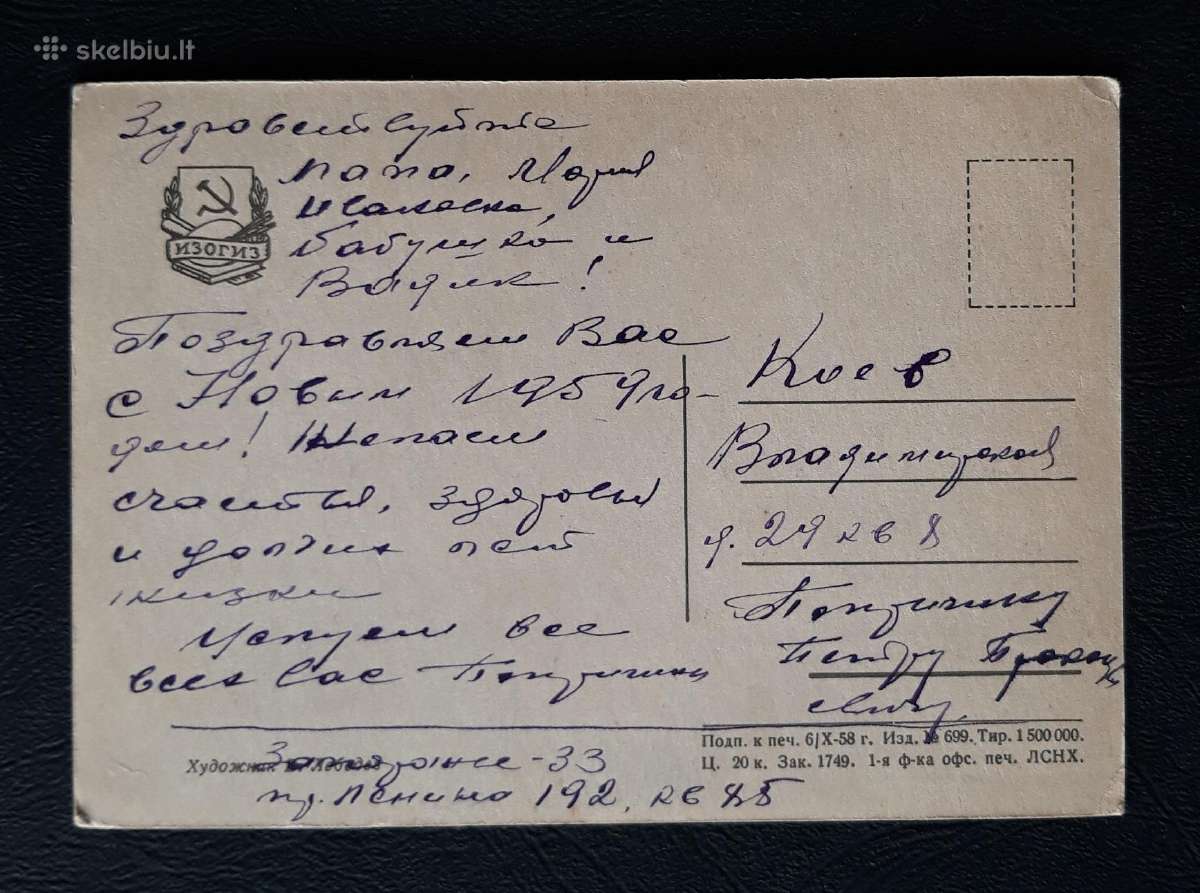 skelbiu.lt
Здравствуйте
папа, Мария
Исаковна,
бабушка и
Вадик!
ИЗОГИЗ
Поздравляем Вас
с Новым 1959 го-
дом! Желаем
счастья, здоровья
и долгих лет
жизни
Целуем все
всех вас
Запорожье-33
пр. Ленина 192, кв 85
Киев
Владимирская
д. 29 кв 8
Петру
Подп. к печ. 6/X-58 г. Изд. № 699. Тир. 1 500 000.
Ц. 20 к. Зак. 1749. 1-я ф-ка офс. печ. ЛСНХ.
Художник В. Лебедев